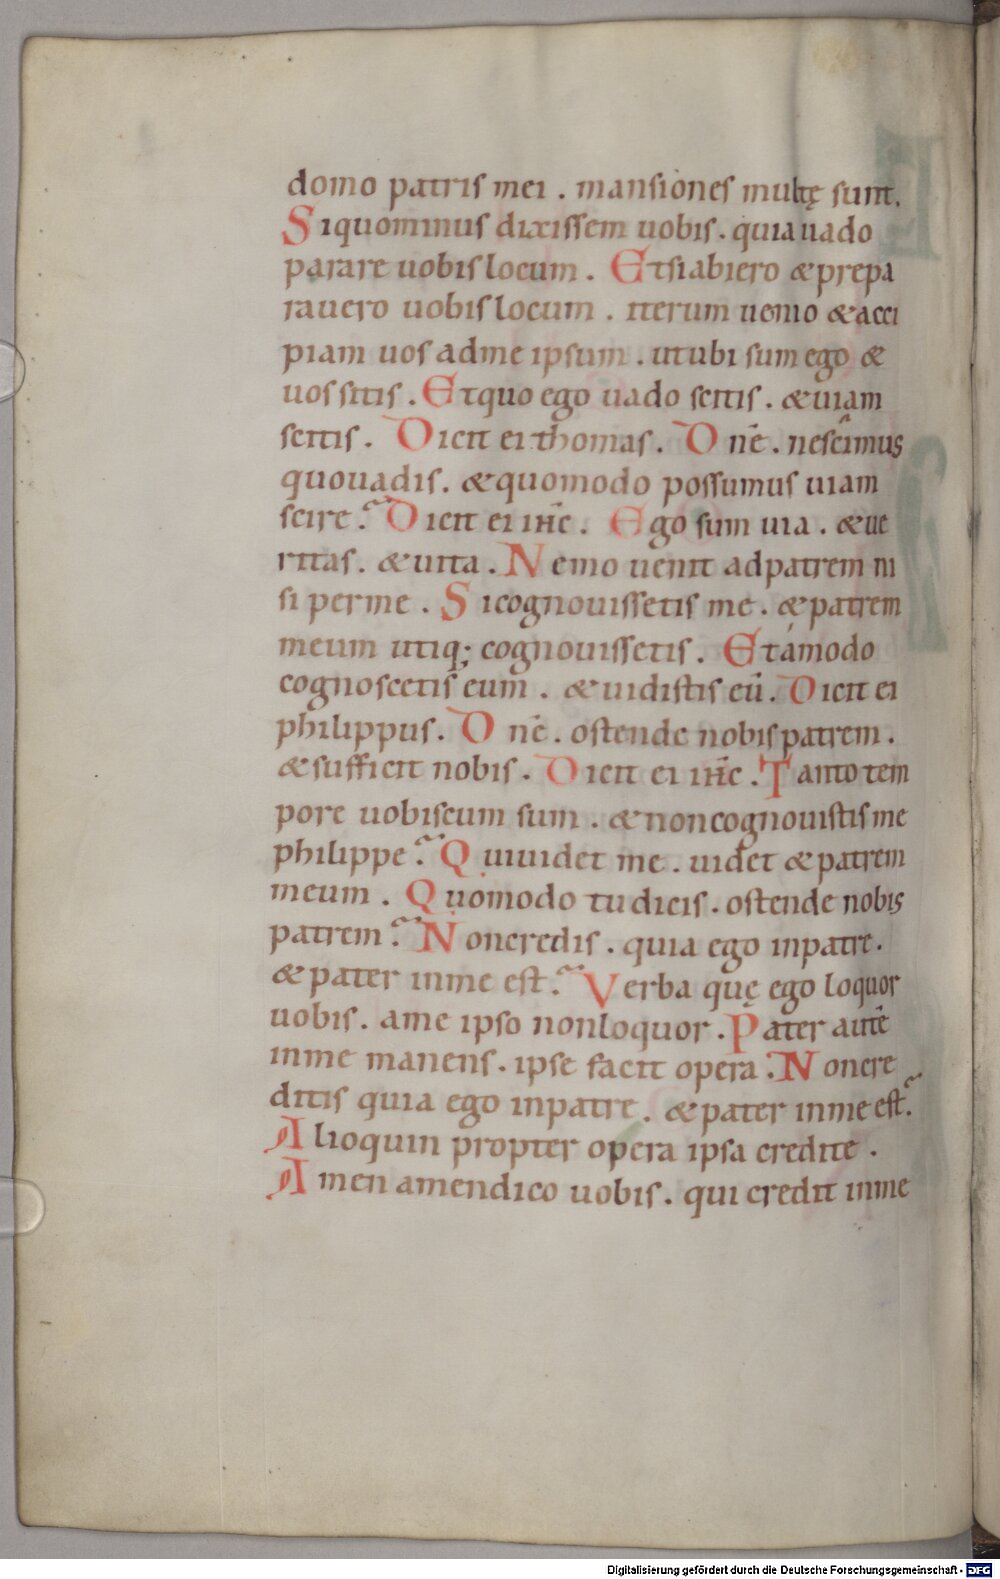 domo patris mei . mansiones multę sunt.
Siquominus dixissem uobis . quia uado
parare uobis locum . Et si abiero & prepa
rauero uobis locum . iterum uenio & acci
piam uos ad me ipsum . ut ubi sum ego &
uos sitis . Et quo ego uado scitis . & uiam
scitis . Dicit ei thomas . Dnē . nescimus
quo uadis . & quomodo possumus uiam
scire ? Dicit ei ihc̄ . Ego sum uia . & ue
ritas . & uita . Nemo uenit ad patrem ni
si per me . Si cognouissetis me . & patrem
meum utiq; cognouissetis . Et ámodo
cognoscetis eum . & uidistis eū . Dicit ei
philippus . Dnē . ostende nobis patrem .
& sufficit nobis . Dicit ei ihc̄ . Tanto tem
pore uobiscum sum . & non cognouistis me
philippe ? Qui uidet me . uidet & patrem
meum . Quomodo tu dicis . ostende nobis
patrem ? Non credis . quia ego in patre .
& pater in me est ? Verba quę ego loquor
uobis . a me ipso non loquor . Pater autē
in me manens . ipse facit opera . Non cre
ditis quia ego in patre . & pater in me est ?
Alioquin propter opera ipsa credite .
Amen amen dico uobis . qui credit in me
Digitalisierung gefördert durch die Deutsche Forschungsgemeinschaft - DFG